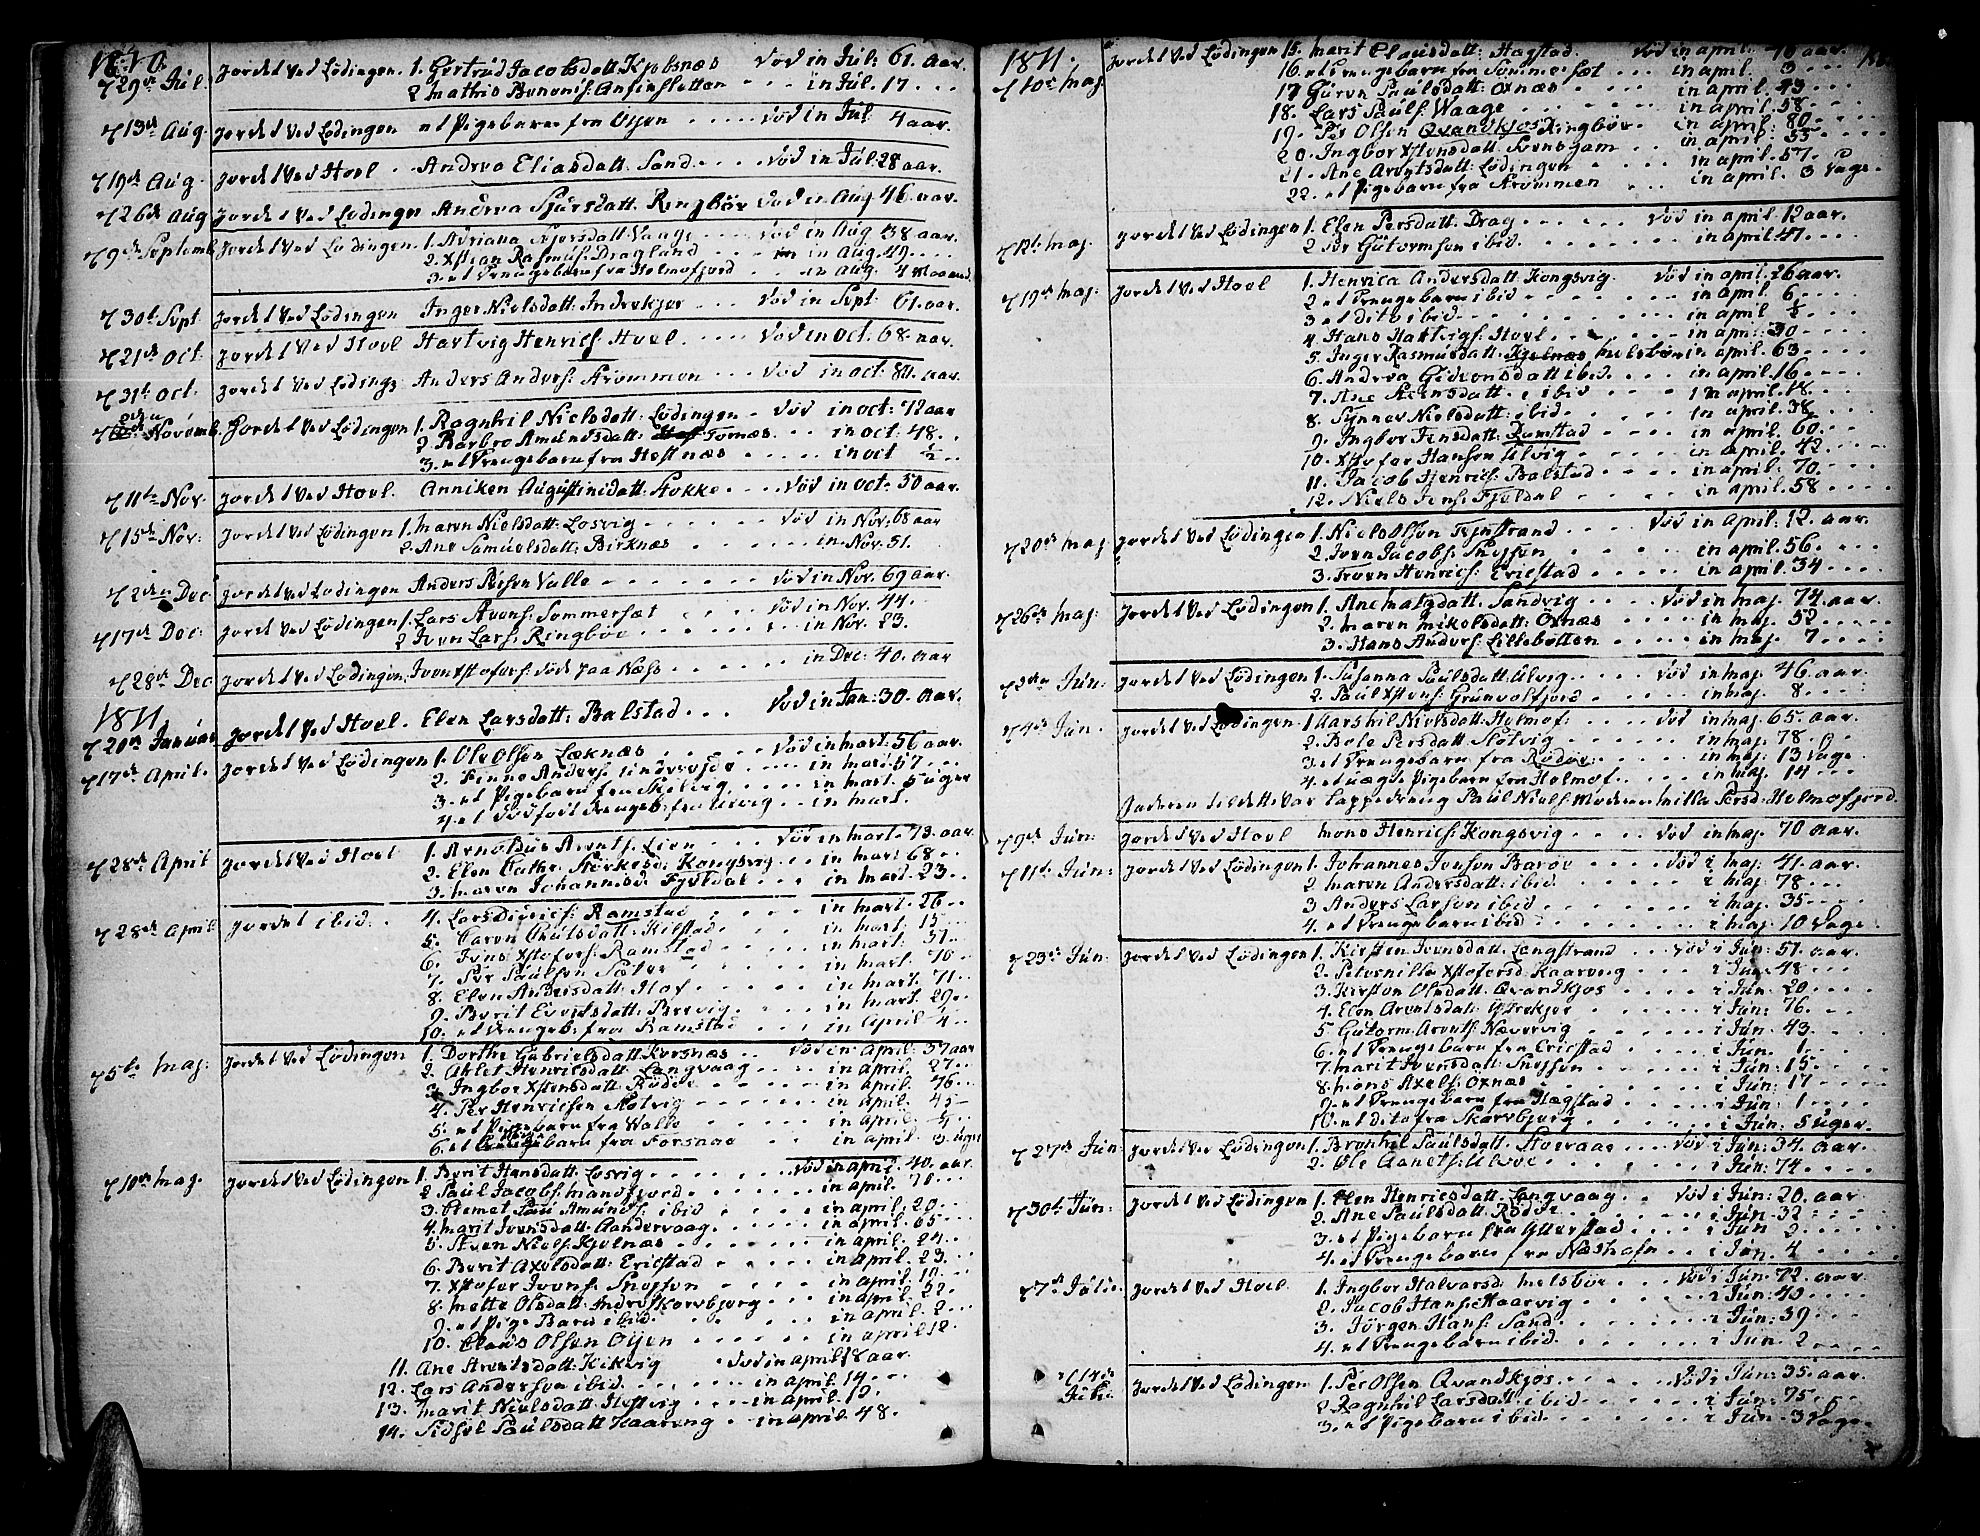 1810.
d 29de Jul. jordet ved Lødingen. 1. Gertrud Jacobsdatt: Kjølsnæs død in Jul: 61. aar.
2 Mathis in Jul. 17
d 13de Aug. jordet ved Lødingen et Pigebarn fra Offen død in Jul 4 aar.
d 19de Aug. jordet ved Hoel. Andrea Eliasdatt: Sand. død in Jul. 28 aar.
d 26de Aug jordet ved Lødingen Andrea Sjursdatt. Ringbøe død in Aug 46 aar.
d 9de Septemb. jordet ved Lødingen. 1. Adriana datt: Vaage død in Aug 38 aar.
2. Xstian Rasmus: Dragland in Aug. 49
3. et Drengebarn fra Holmefjord in Aug. 4 Maaned
d 30te Sept. jordet ved Lødingen Inger Nielsdatt: Indrekjer død in Sept: 61. aar.
d 21de Oct. jordet ved Hoel Hartvig Henrics: Hoel. død in oct. 68. aar.
d 31te Oct. jordet ved Lødings Anders Anders: Strommen død in oct. 80. aar.
d Novemb. jordet ved Lødingen 1. Ragnhil Nielsdatt: Lødingen død in oct: 72 aar
2. Barbro Amundsdatt: Fornæs. in oct. 48.
3. et Drengebarn fra Hestnæs in oct ½
d 11te Nov. jordet ved Hoel. Anniken Augustinidatt: Stokke død in oct. 50 aar.
d 15de Nov: jordet ved Lødingen 1. Maren Nielsdatt: Losvig død in Nov: 68 aar
2. Ane Samuelsdatt: Birknæs in Nov. 51.
d 2den Dec jordet ved Lødingen Anders Persen Valle død in Nov. 69 aar.
d 17de Dec: jordet ved Lødingen 1. Lars Svens: Sommersæt død in Nov. 44.
2 Iven Lars: Ringbøe in Nov. 23.
d 28de Dec jordet ved Lødingen, Iven Xstofers: død paa Næss in Dec: 40. aar
1811.
d 20de Januar jordet ved Hoel. Elen Larsdatt: Balstad død in Jan: 30. aar.
d 17de April. jordet ved Lødingen 1. Ole Olsen Læknæs død in mart: 56 aar.
2. Finne Anders: in mart. 57
3. et Pigebarn fra Skelvig in mart. 5 uger
4. et dødfødt drengeb: fra Ulvig in mart.
d 28de April jordet ved Hoel 1. Arnoldus Arents. Lien død in mart. 73. aar
2. Elen Cathr: Størkesd: Kongsvig in mart 68
3. Maren Johannesd: Fjeldal in mart. 23
d 28de April jordet ibid. 4. Lars Didrics: Ramstad in mart. 26
5. Caren Poulsdatt: Kilstad in mart: 15
6. Jens Xstofers: Ramstad in mart: 37
7. Per Paulsen Sæter in mart. 76
8. Elen Andersdatt: Hof in mart. 71
9. Berit Evertsdatt: Brevig in mart. 29
10. et drengeb. fra Ramstad in April 4
d 5te Maj: jordet ved Lødingen 1. Dorthe Gabrielsdatt: Korsnæs død in April: 37 aar
2. Ahlet Henricsdatt: Langvaag in april. 27
3. Ingbor Xstensdatt: Rødøe in april. 76
4. Per Henricsen Slotvig in april. 45
5. et Pigebarn fra Valle in april. ½
6. et barn fra Forsnæs in april. 3 uger
d 10de Maj. jordet ved Lødingen 1. Berit Hansdatt: Losvig død in april. 40. aar
2 Paul Jacobs: Mandfjord in april. 71
3. Clemet Paul Amunds: ibid in april. 20
4. Marit Ivensdatt: Sandervaag in april. 65
5. Sven Niels: Kjelnæs in april. 24
6. Berit Axelsdatt: Ericstad in april. 23
7. Xstofer Ivens: Snejsen in april. 19
8. Mette Olsdatt: Indreskorvbjerg in april. 22
9. et Pige Barn ibid. in april. 2
10. Claus Olsen Offen in april 12
11. Ane Arentsdatt: Kikvig død in april 18 aar.
12. Lars Andersen ibid. in april. 14
13. Marit Nielsdatt: Heftvig in april. 19.
14. Sidsel Paulsdatt Kaareng in april. 48.
1811.
d 10de Maj jordet ved Lødingen 15. Marit Clausdatt: Hagstad. død in april. 70 aar.
16. et Drengebarn fra Sommerset in april. 3
17 Guren Paulsdatt: Oxnæs in april. 43
18. Lars Pauls: Waage in april. 58
19. Per Olsen Qvandkjos Ringbøe in april. 80
20. Ingbor Xstensdatt: Svensgam in april: 55
21. Ane Arentsdatt: Lødingen in april. 57.
22. et Pigebarn fra Strommen in april. 3 Dage.
d 12te Maj. jordet ved Lødingen 1. Elen Persdatt: Drag død in april. 12 aar.
2 Per Gutormsen ibid. in april 47
d 19de Maj. jordet ved Hoel 1. Henrica Andersdatt: Kongsvig. død in april. 26 aar.
2 et Drengebarn ibid in april 6
3 et dito ibid in april ½
4. Hans Hartvigs: Hoel in april: 30
5. Inger Rasmusdatt: Melsbøe in april. 63
6. Andrea Gideonsdatt ibid. in april. 16
7. Ane Steensdatt: ibid in april. 18
8. Synnev Nielsdatt: ibid. in april. 38
9. Ingbor Jensdatt: Ramstad in april. 60
10. Xstofer Hansen Ulvig in april. 42
11. Jacob Henrics: Balstad in april. 70
12. Niels Jens: Fjeldal in april. 58
d 20de Maj. jordet ved Lødingen 1. Niels Olsen Tjenstrand død in april. 12. aar.
2. Iven Jacobs: Snejsen in april. 56
3. Iven Henrics: Ericstad in april. 34
d 26de Maj. jordet ved Lødingen 1. Ane Matsdatt: Sandvig død in maj. 74. aar
2. Maren Mikelsdatt: Oxnæs in maj. 52
3. Hans Anders: Lillebotten in maj. 7
d 2den Jun: jordet ved Lødingen 1. Susanna Paulsdatt Ulvig død in maj 46. aar
2. Paul Xstens: Grunvolfjord in maj. 8
d 4de Jun. jordet ved Lødingen. 1 Aarshil Nielsdatt Holmof: død in maj. 65. aar
2. Bele Persdatt Slotvig in maj. 78
3. et Drengebarn fra Rødøe in maj. 13 Dage
4. et uægte Pigebarn fra Holmof. in maj. 14
Faderen til dette var Lappedreng Paul Niels: Moderen Milla Persd: Holmofjord.
d 9de Jun: jordet ved Hoel Mons Henrics: Kongsvig død in maj. 70 aar.
d 11te Jun: jordet ved Lødingen 1. Johannes Jensen Barøe død i maj. 41. aar
2 Maren Andersdatt: ibid i maj: 78
3 Anders Larsen ibid i maj. 35
4. et Drengebarn ibid i maj. 10 Dage
d 23de Jun: jordet ved Lødingen 1. Kirsten Ivensdatt. Lengstrand død i Jun: 51. aar
2. Peternille Xstofersd: Kaareng i Jun: 48
3. Kirsten Olsdatt: Qvandkjos i Jun: 20
4. Elen Arentsdatt: Yttrekjer i Jun: 76
5 Gutorm Arents: Nævervig i Jun: 43
6. et Drengebarn fra Ericstad i Jun: 1
7. Marit Ivensdatt: Snejsen i Jun: 15
8. Mons Axels: Oxnæs i Jun: 17
9. et Drengebarn fra Hægstad i Jun: 1
10. et dito fra Skorvbjerg i Jun: 5 uger.
d 27de Jun jordet ved Lødingen 1. Bronhil Paulsdatt: Storvaag død i Jun: 34. aar
2. Ole i Jun: 74
d 30te Jun: jordet ved Lødingen 1. Elen Henricsdatt: Langvaag død i Jun: 20. aar
2. Ane Paulsdatt: Rødøe i Jun. 32
3. et Pigebarn fra Ytterstad i Jun 2
4. et Drengebarn fra Næshafn i Jun. 4
d 7de Julii. jordet ved Hoel 1. Ingbor Halvarsd: Melsbøe død i Jun: 72. aar
2. Jacob Hans: Kaarvig i Jun: 40
3. Jørgen Hans: Sand i Jun: 39
4. et Drengebarn ibid. i Jun: 2
d 14de Julii jordet ved Lødingen 1. Per Olsen Qvandkjos død i Jun: 35. aar
2 Ragnhil Larsdatt: ibid i Jun: 75
3. et Pigebarn ibid. i Jun: 3 Dage